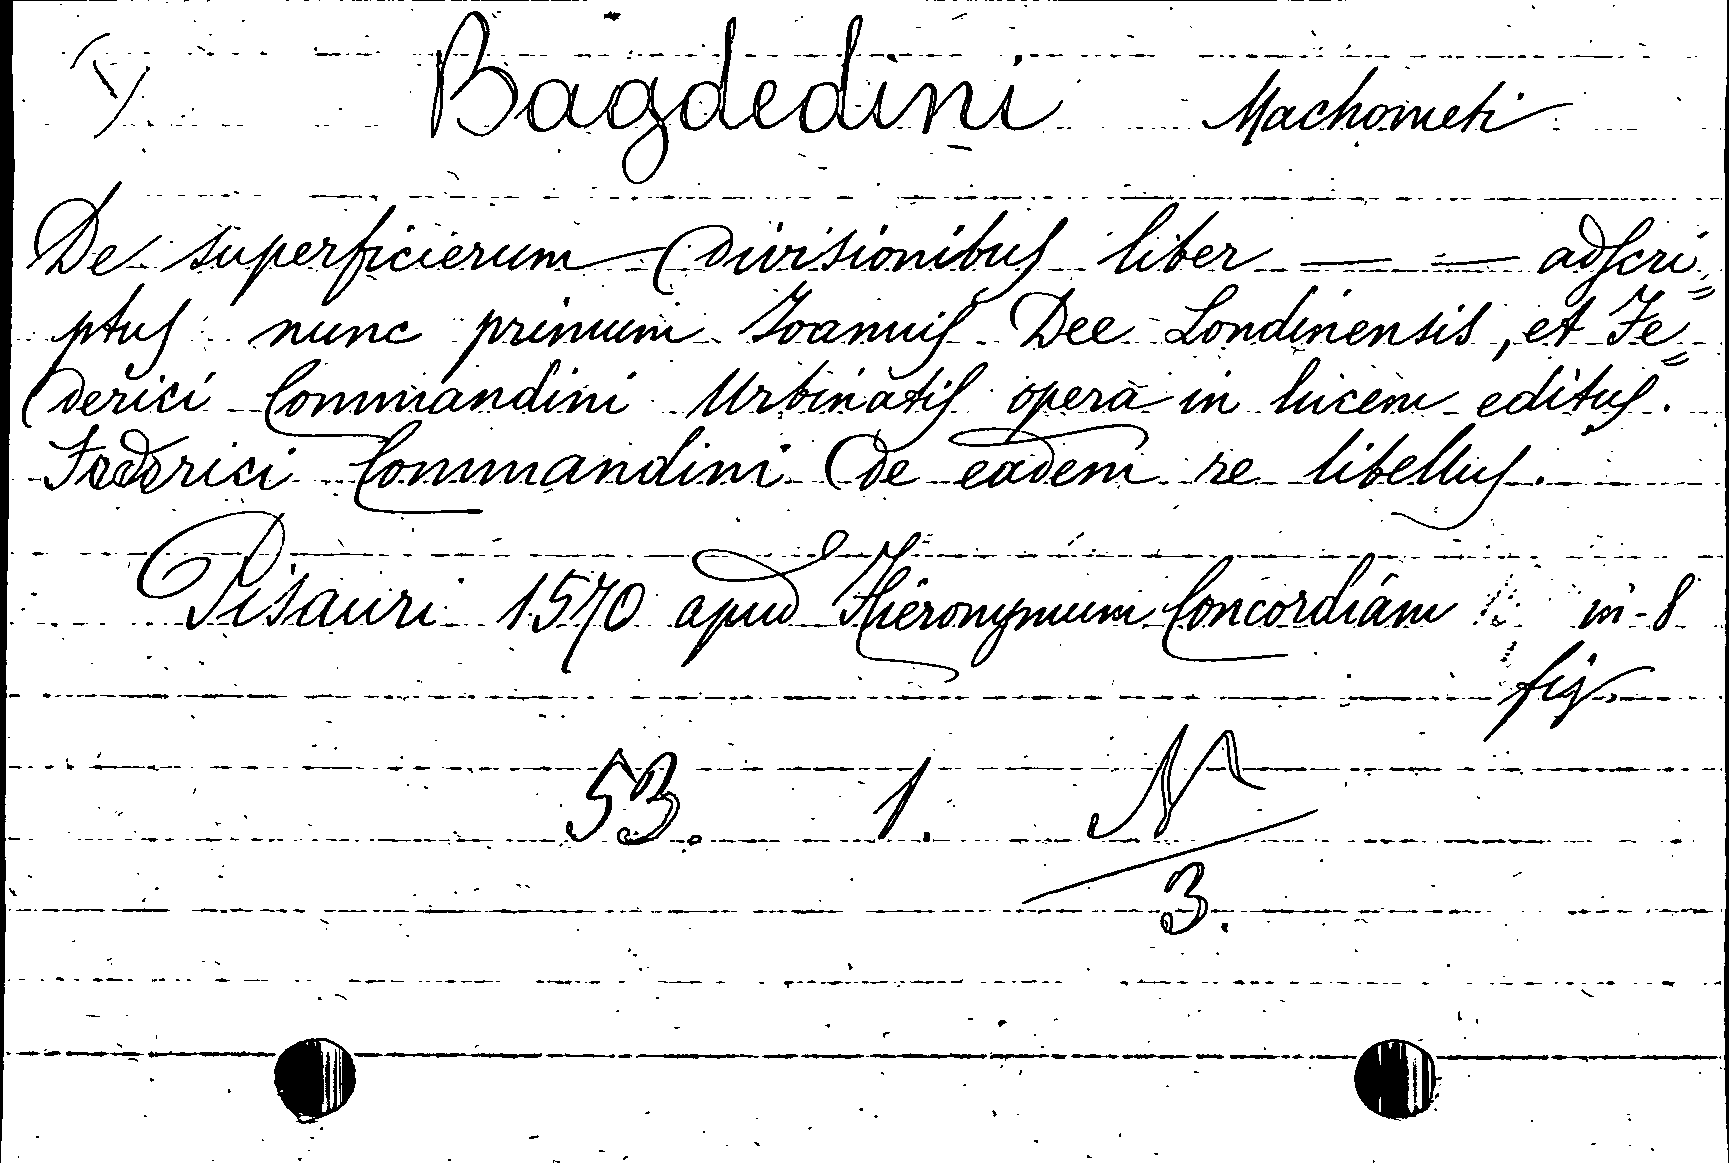 Bagdedini Machometi
De superficierum divisionibus liber — — adscri=
ptus nunc primum Ioannis Dee Londinensis, et Fe=
derici Commandini Urbinatis opera in lucem editus.
Federici Commandini de eadem re libellus.
Pisauri 1570 apud Hieronymum Concordiam in-8
fig.
53. 1. N
3.